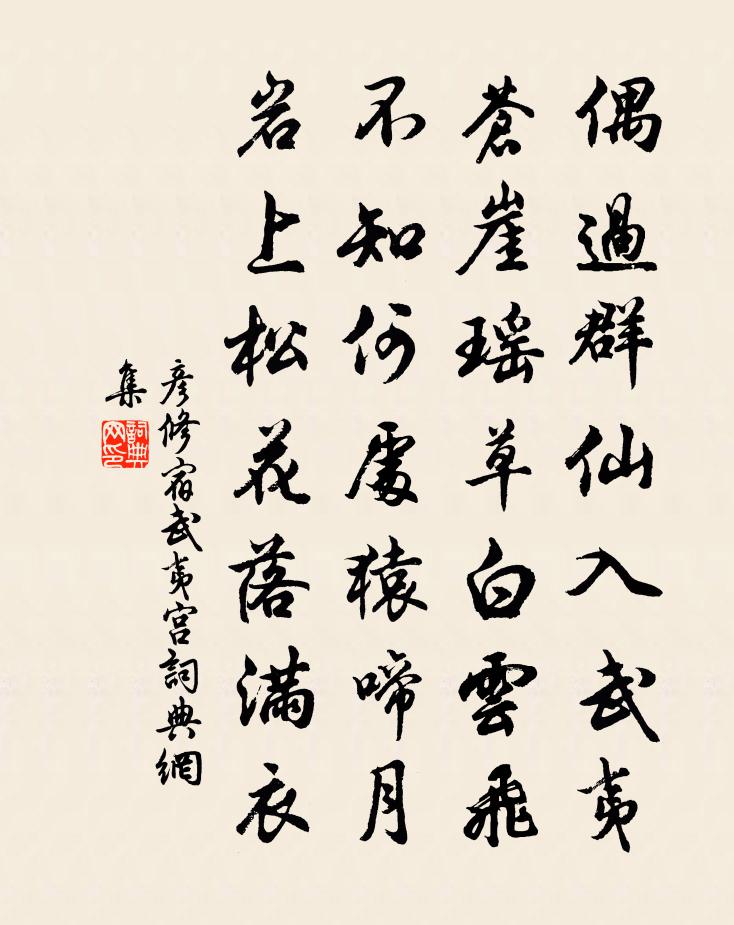 偶過群仙入武夷
蒼崖瑶草白雲飛
不知何處猿啼月
岩上松花落滿衣
彦修宿武夷宫詞典網
集
詞典
网印